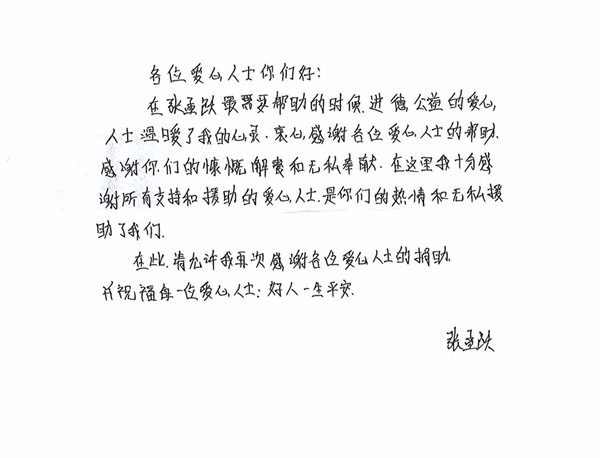 各位爱心人士你们好:
在张孟跃最需要帮助的时候.进德公益的爱心
人士温暖了我的心灵.衷心感谢各位爱心人士的帮助.
感谢你们的慷慨解囊和无私奉献.在这里我十分感
谢所有支持和援助的爱心人士.是你们的热情和无私援
助了我们.
在此.请允许我再次感谢各位爱心人士的捐助.
并祝福每一位爱心人士:好人一生平安.
张孟跃